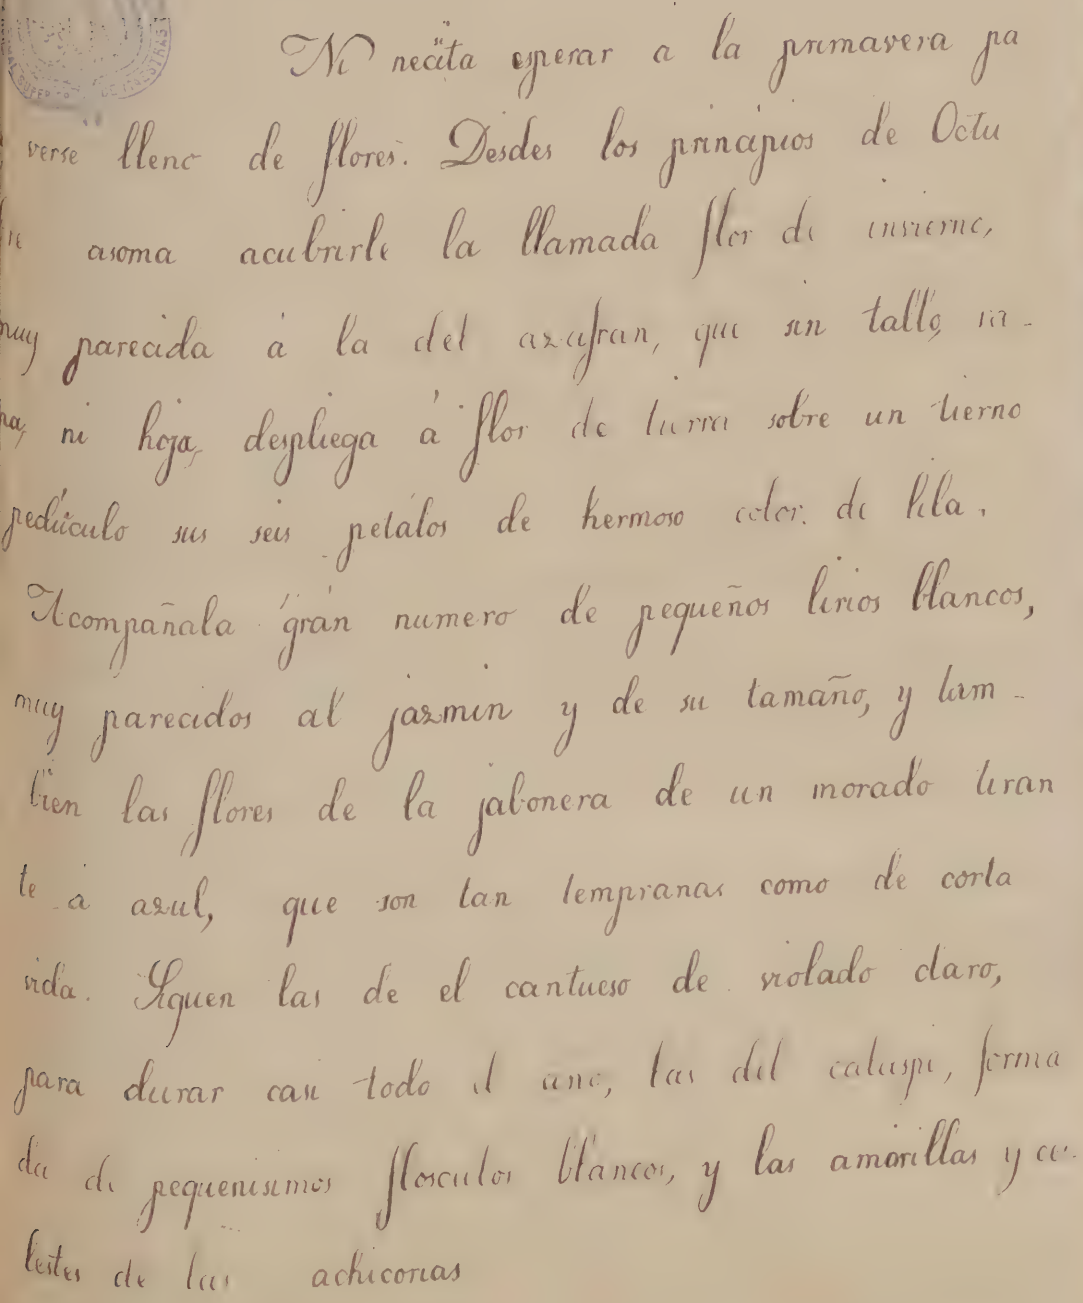 Ni necita esperar a la primavera pa
verse lleno de flores. Desdes los principios de Octu
re asoma acubrirle la llamada flor de invierno,
muy parecida á la del azafran, que sin tallo, ra-
ma, ni hoja, despliega á flor de tierra sobre un tierno
pedúculo sus seis petalos de hermoso color de lila.
Acompañala gran numero de pequeños lirios blancos,
muy parecidos al jazmin y de su tamaño, y tam-
bien las flores de la jabonera de un morado tiran
te á azul, que son tan tempranas como de corta
vida. Siguen las de el cantueso de violado claro,
para durar casi todo el ano, las del calaspi, forma
da de pequenisimos flosculos blancos, y las amarillas y ce-
lestes de las achicorias